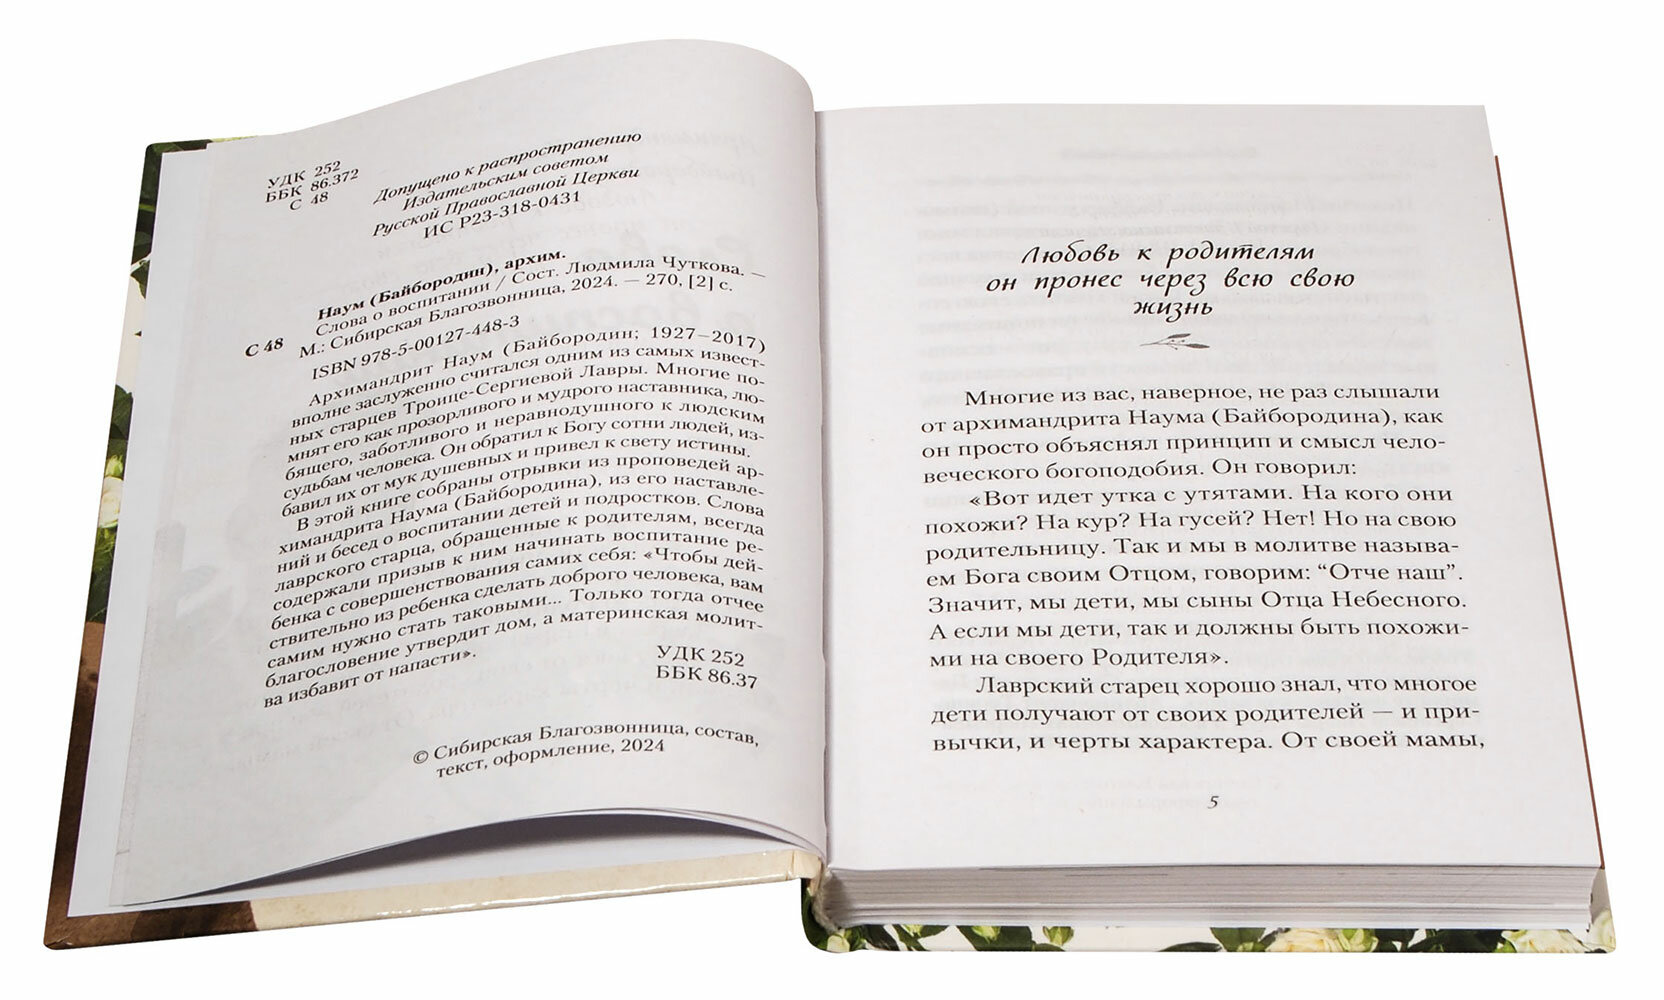 УДК 252
ББК 86.372
С 48
Допущено к распространению
Издательским советом
Русской Православной Церкви
ИС Р23-318-0431
Наум (Байбородин), архим.
Слова о воспитании / Сост. Людмила Чуткова. —
С 48 М.: Сибирская Благозвонница, 2024. — 270, [2] с.
ISBN 978-5-00127-448-3
Архимандрит Наум (Байбородин; 1927–2017)
вполне заслуженно считался одним из самых извест-
ных старцев Троице-Сергиевой Лавры. Многие по-
мнят его как прозорливого и мудрого наставника, лю-
бящего, заботливого и неравнодушного к людским
судьбам человека. Он обратил к Богу сотни людей, из-
бавил их от мук душевных и привел к свету истины.
В этой книге собраны отрывки из проповедей ар-
химандрита Наума (Байбородина), из его наставле-
ний и бесед о воспитании детей и подростков. Слова
лаврского старца, обращенные к родителям, всегда
содержали призыв к ним начинать воспитание ре-
бенка с совершенствования самих себя: «Чтобы дей-
ствительно из ребенка сделать доброго человека, вам
самим нужно стать таковыми... Только тогда отчее
благословение утвердит дом, а материнская молит-
ва избавит от напасти».
УДК 252
ББК 86.37
© Сибирская Благозвонница, состав,
текст, оформление, 2024
Любовь к родителям
он пронес через всю свою
жизнь
Многие из вас, наверное, не раз слышали
от архимандрита Наума (Байбородина), как
он просто объяснял принцип и смысл чело-
веческого богоподобия. Он говорил:
«Вот идет утка с утятами. На кого они
похожи? На кур? На гусей? Нет! Но на свою
родительницу. Так и мы в молитве называ-
ем Бога своим Отцом, говорим: “Отче наш”.
Значит, мы дети, мы сыны Отца Небесного.
А если мы дети, так и должны быть похожи-
ми на своего Родителя».
Лаврский старец хорошо знал, что многое
дети получают от своих родителей — и при-
вычки, и черты характера. От своей мамы,
5